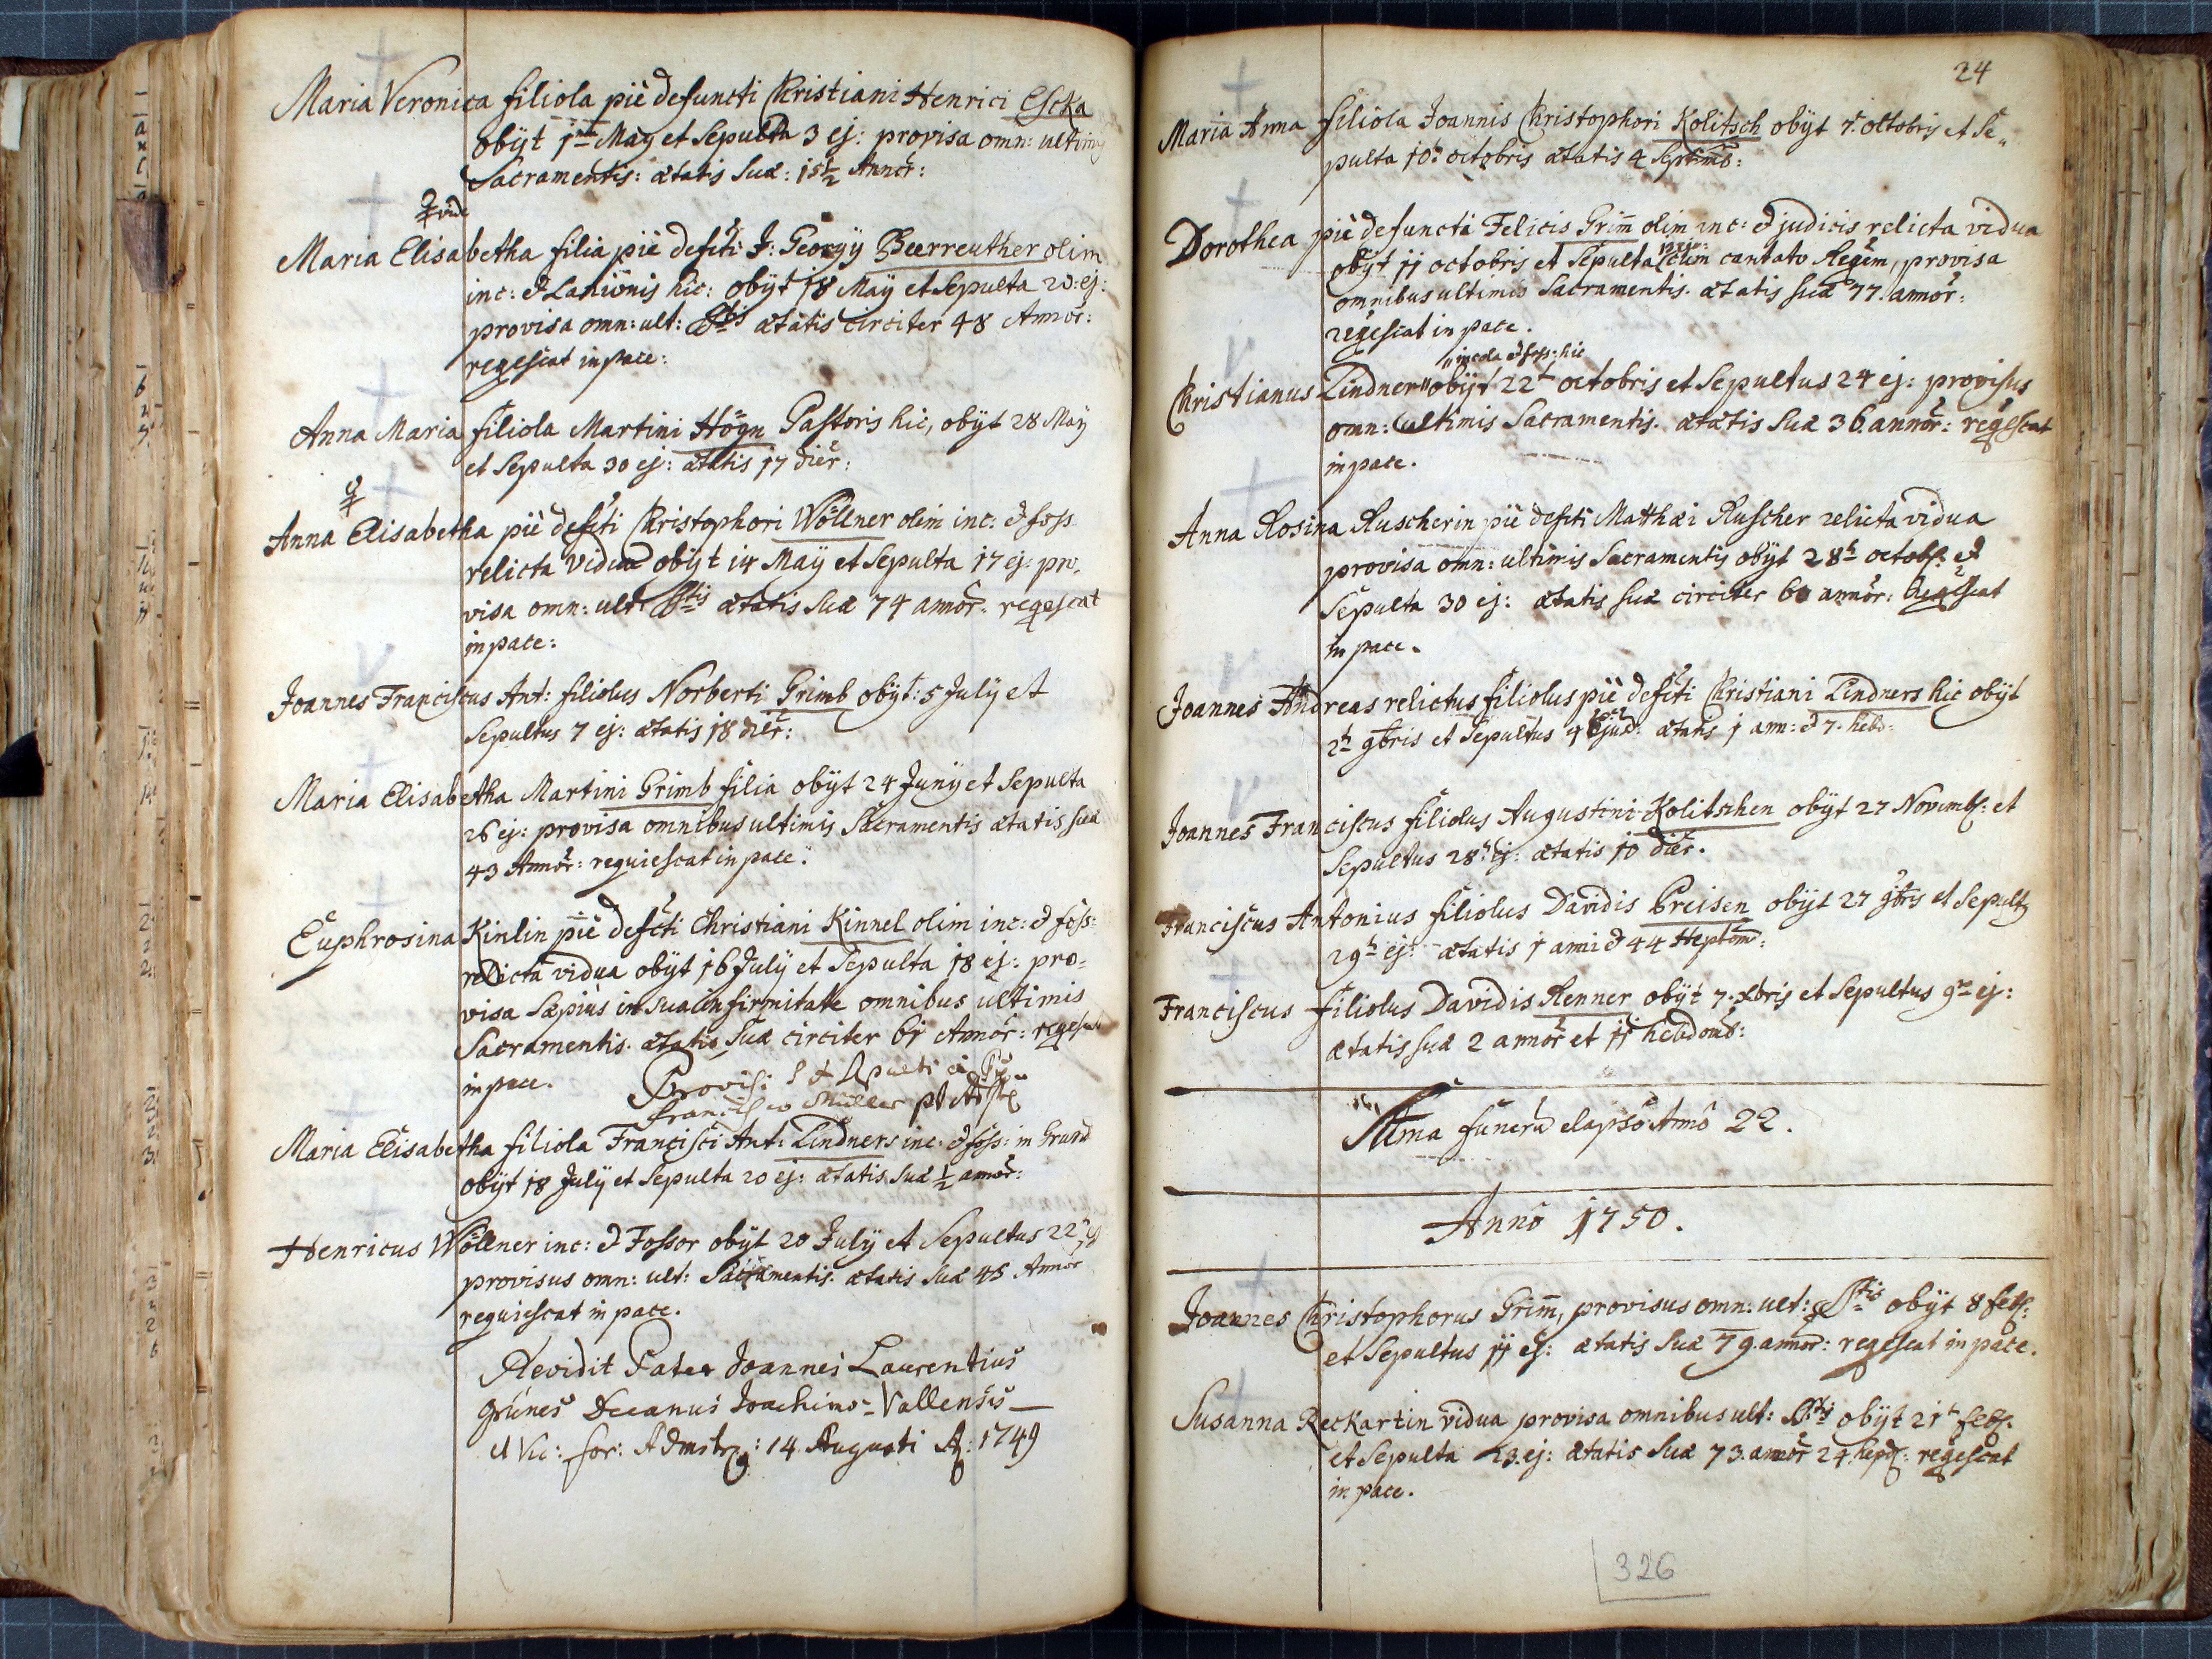 Maria Veronica filiola piè defuncti Christiani Henrici Escka
obÿt 1ma May et Sepulta 3 ej: provisa omn: ultimis
Sacramentis: ætatis Suæ: 15½ Annor:
vide
Maria Elisabetha filia piè defcti J: Georgÿ Beerreuther olim
inc: & Lanionis hic: obÿt 18 Maÿ et Sepulta 20: ej:
provisa omn: ult: Stis ætatis circiter 48 Annor:
reqescat in pace:
Anna Maria filiola Martini Högn Pastoris hic, obÿt 28 Maÿ
et Sepulta 30 ej: ætatis 17 dier:
Anna Elisabetha piè defcti Christophori Wöllner olim inc: & foss.
relicta Vidua obÿt 14 Maÿ et Sepulta 17 ej: pro,
visa omn: ult: Stis ætatis Suæ 74 annor: reqescat
in pace:
Joannes Franciscus Ant: filiolus Norberti Grimb obÿt: 5 Julÿ et
Sepultus 7 ej: ætatis 18 dier:
Maria Elisabetha Martini Grimb filia obÿt 24 Junÿ et Sepulta
26 ej: provisa omnibus ultimis Sacramentis ætatis suæ
43 Annor: requiescat in pace:
Euphrosina Kinlin piè defcti Christiani Kinnel olim inc: & foss:
relicta vidua obÿt 16 Julÿ et Sepulta 18 ej: pro=
visa sæpius in sua infirmitate omnibus ultimis
Sacramentis. ætatis Suæ circiter 61 Annor: reqescat
in pace. Provisi et Sepulti à
Francisco Müller
Maria Elisabetha filiola Francisci Ant: Lindners inc: & foss: in Grund
obÿt 18 Julÿ et Sepulta 20 ej: ætatis Suæ ½ annor:
Henricus Wöllner inc: & Fossor obÿt 20 Julÿ et Sepultus 22 ej
provisus omn: ult: Sacramentis. ætatis Suæ 45 Annor
requiescat in pace.
Revidit Pater Joannes Laurentius
Grünes Decanus Joachimo-Vallensis
et Vic: for: Admstr: 14 Augusti A: 1749
24
Maria Anna filiola Joannis Christophori Kolitsch obÿt 7. octobris et Se„
pulta 10. octobris ætatis 4 Septim:
Dorothea piè defuncti Felicis Grim̄ olim inc: & judicis relicta vidua
obÿt 11 octobris et Sepulta cum cantato Reqem, provisa
omnibus ultimis Sacramentis. ætatis suæ 77. annor:
reqescat in pace.
„incola & foss: hic
Christianus Lindner„ obÿt 22t octobris et Sepultus 24 ej: provisus
omn: ultimis Sacramentis. ætatis Suæ 36. annor: reqescat
in pace.
Anna Rosina Ruscherin piè defcti Matthæi Ruscher relicta vidua
provisa omn: ultimis Sacramentis obÿt 28t octob: &
Sepulta 30 ej: ætatis suæ circiter 60 annor: Reqescat
in pace.
Joannes Andreas relictus filiolus piè defcti Christiani Lindners hic obÿt
2t 9bris et Sepultus 4 ejusd: ætatis 1 ann: & 7. hebd:
Joannes Franciscus filiolus Augustini Kolitschen obÿt 27 Novemb: et
Sepultus 28t ej: ætatis 10 dier.
Franciscus Antonius filiolus Davidis Preisen obÿt 27 9bris et Sepultus
29t ej: ætatis 1 anni & 44 Heptom:
Franciscus filiolus Davidis Renner obÿt 7. Xbris et Sepultus 9na ej:
ætatis suæ 2 annor et 11 hebdomb:
Suma funerū elapsô Annô 22.
Annô 1750.
Joannes Christophorus Grim̄, provisus omn: ult: Stis obÿt 8 feb:
et Sepultus 11 ej: ætatis Suæ 79. annor: reqescat in pace.
Susanna Reckartin vidua provisa omnibus ult: Stis obÿt 21t feb:
et Sepulta 23. ej: ætatis Suæ 73. annor 24. hepd: reqescat
in pace.
326